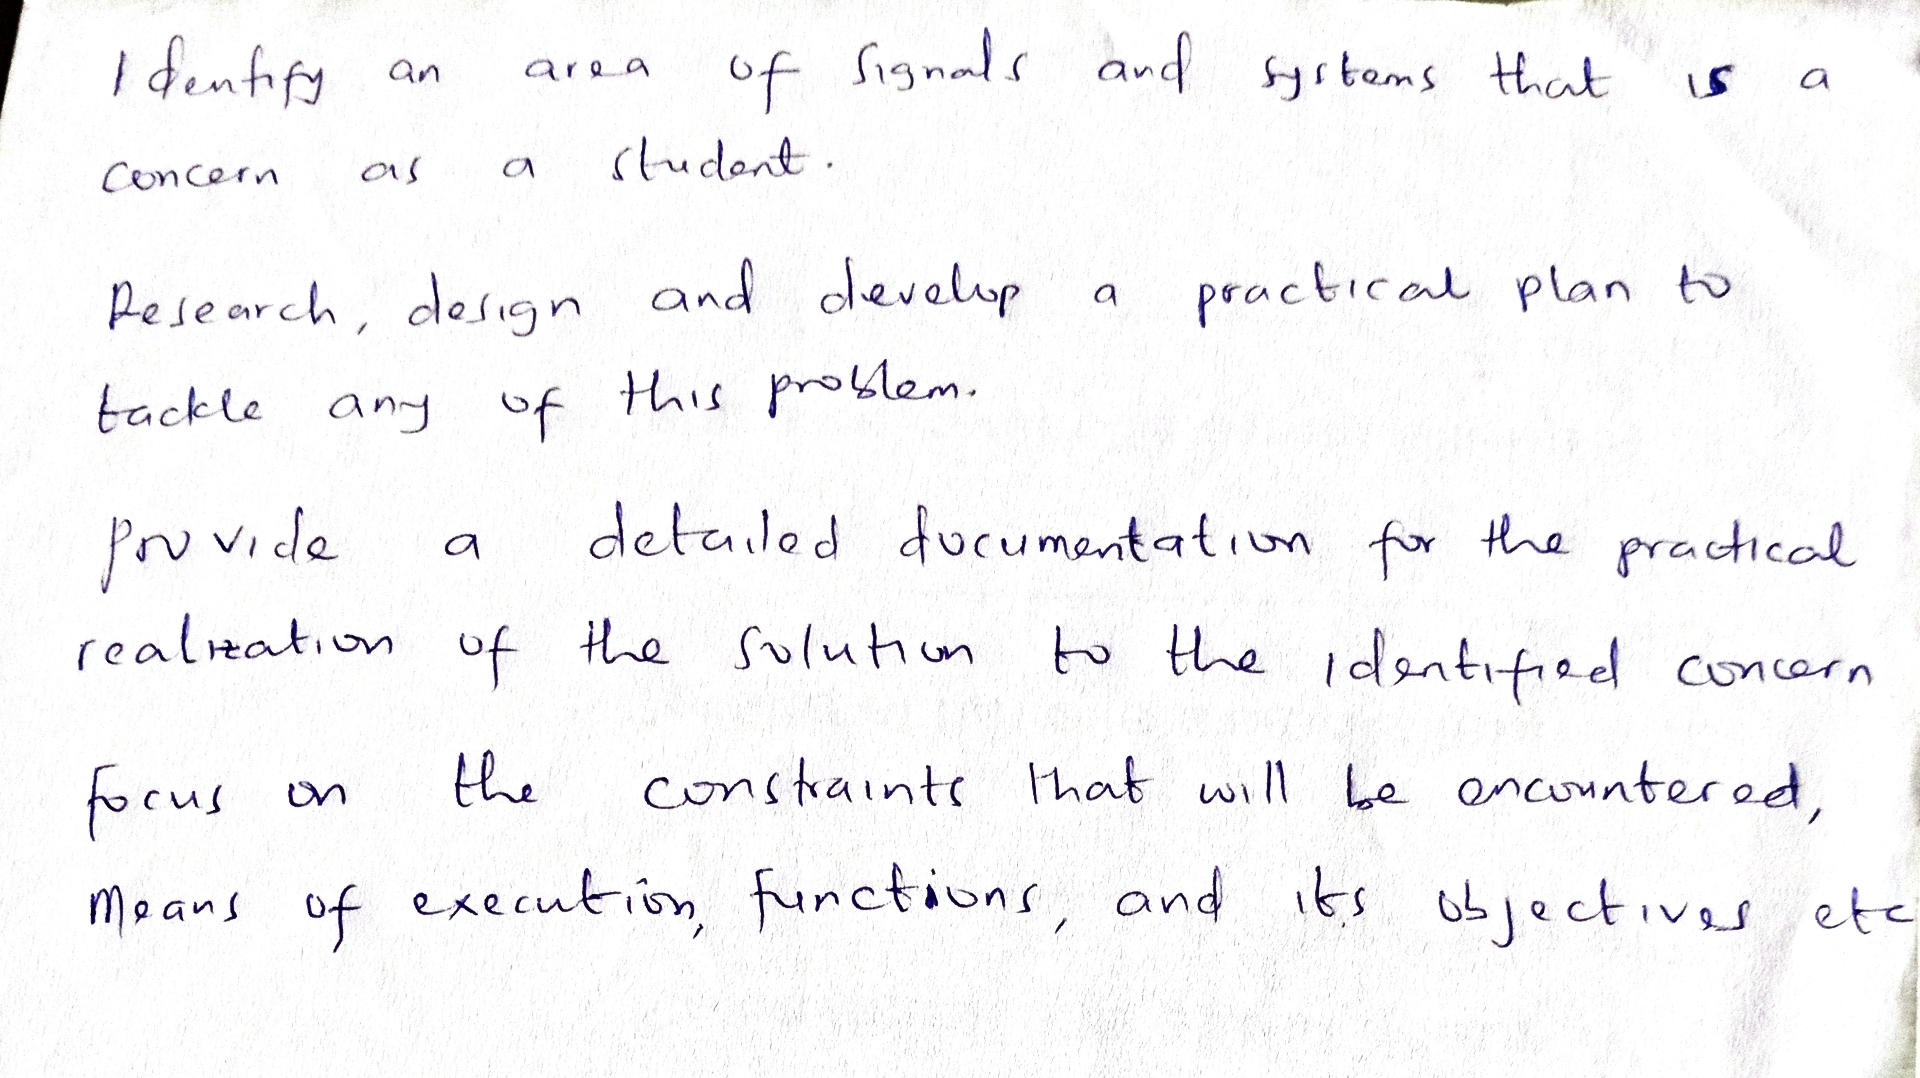 Identify an area of signals and systems that is a
concern as a student.
Research, design and develop a practical plan to
tackle any of this problem.
provide a detailed documentation for the practical
realization of the solution to the identified concern
focus on the constraints that will be encountered,
Means of execution, functions, and its objectives etc